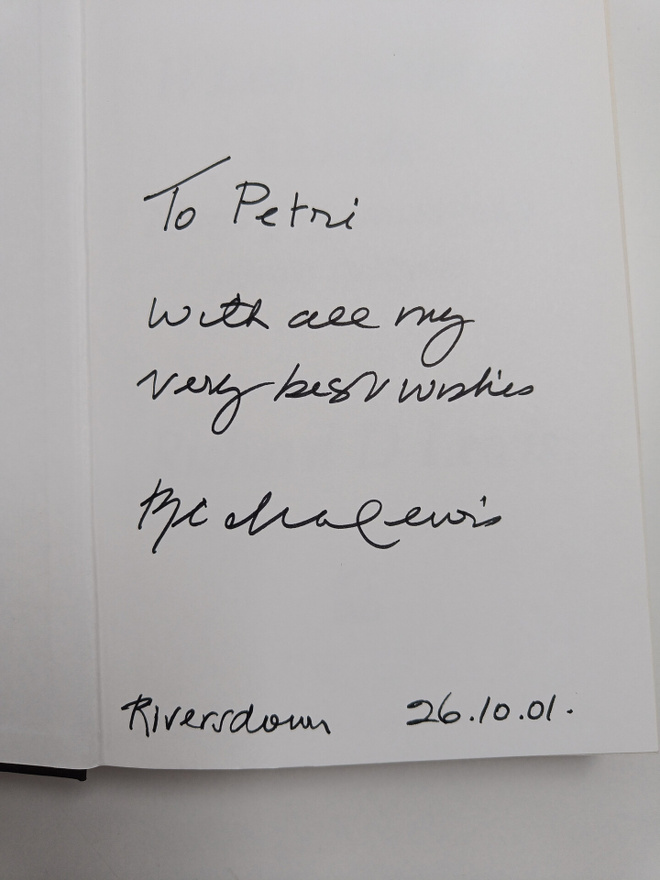 To Petri
With all my
very best wishes
Lewis
Riversdown 26.10.01.